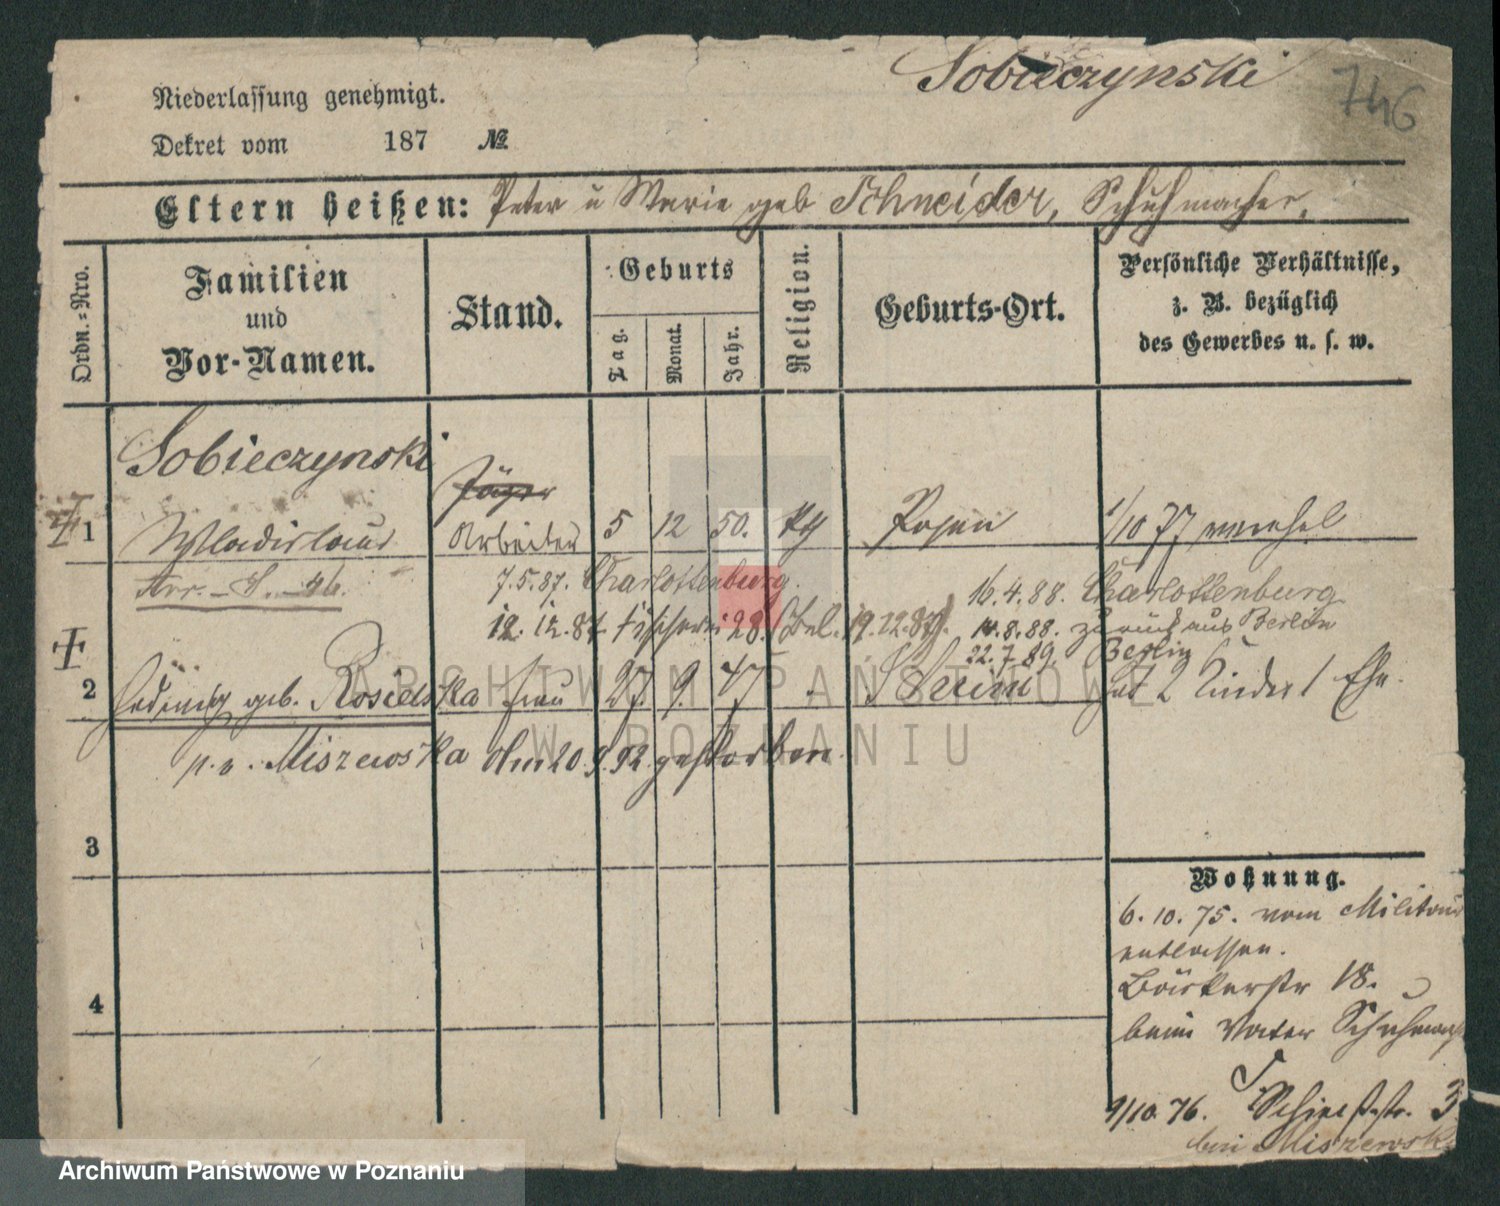 Sobieczynski
746
Niederlassung genehmigt.
Dekret vom 187 №
Eltern heißen: Peter u Marie geb Schneider, Schuhmacher,
Ordn.-Nro.
Familien
und
Vor-Namen.
Stand.
Geburts
Tag.
Monat.
Jahr.
Religion.
Geburts-Ort.
Persönliche Verhältnisse,
z. B. bezüglich
des Gewerbes u. s. w.
Sobieczynski
Jäger
1 Wladislaus Arbeiter 5 12 50. Posen 1/10 77
7.5.87. Charlottenburg.
16.4.88. Charlottenburg
12.12.87. 19.12.87.
11.8.88. zurück aus Berlin
22.7.89. Berlin
2 Hedwig geb. Rosielska Frau 27. 9. 47 Schrimm hat 2 Kinder 1 Ehe.
p. v. Miszewska Am 20.9.92 gestorben.
3
4
Wohnung.
6.10.75. vom Militair
entlassen.
Bäckerstr 18.
beim Vater
9/10.76. Schießstr. 3
bei Miszewsk
ARCHIWUM PAŃSTWOWE
W POZNANIU
Archiwum Państwowe w Poznaniu